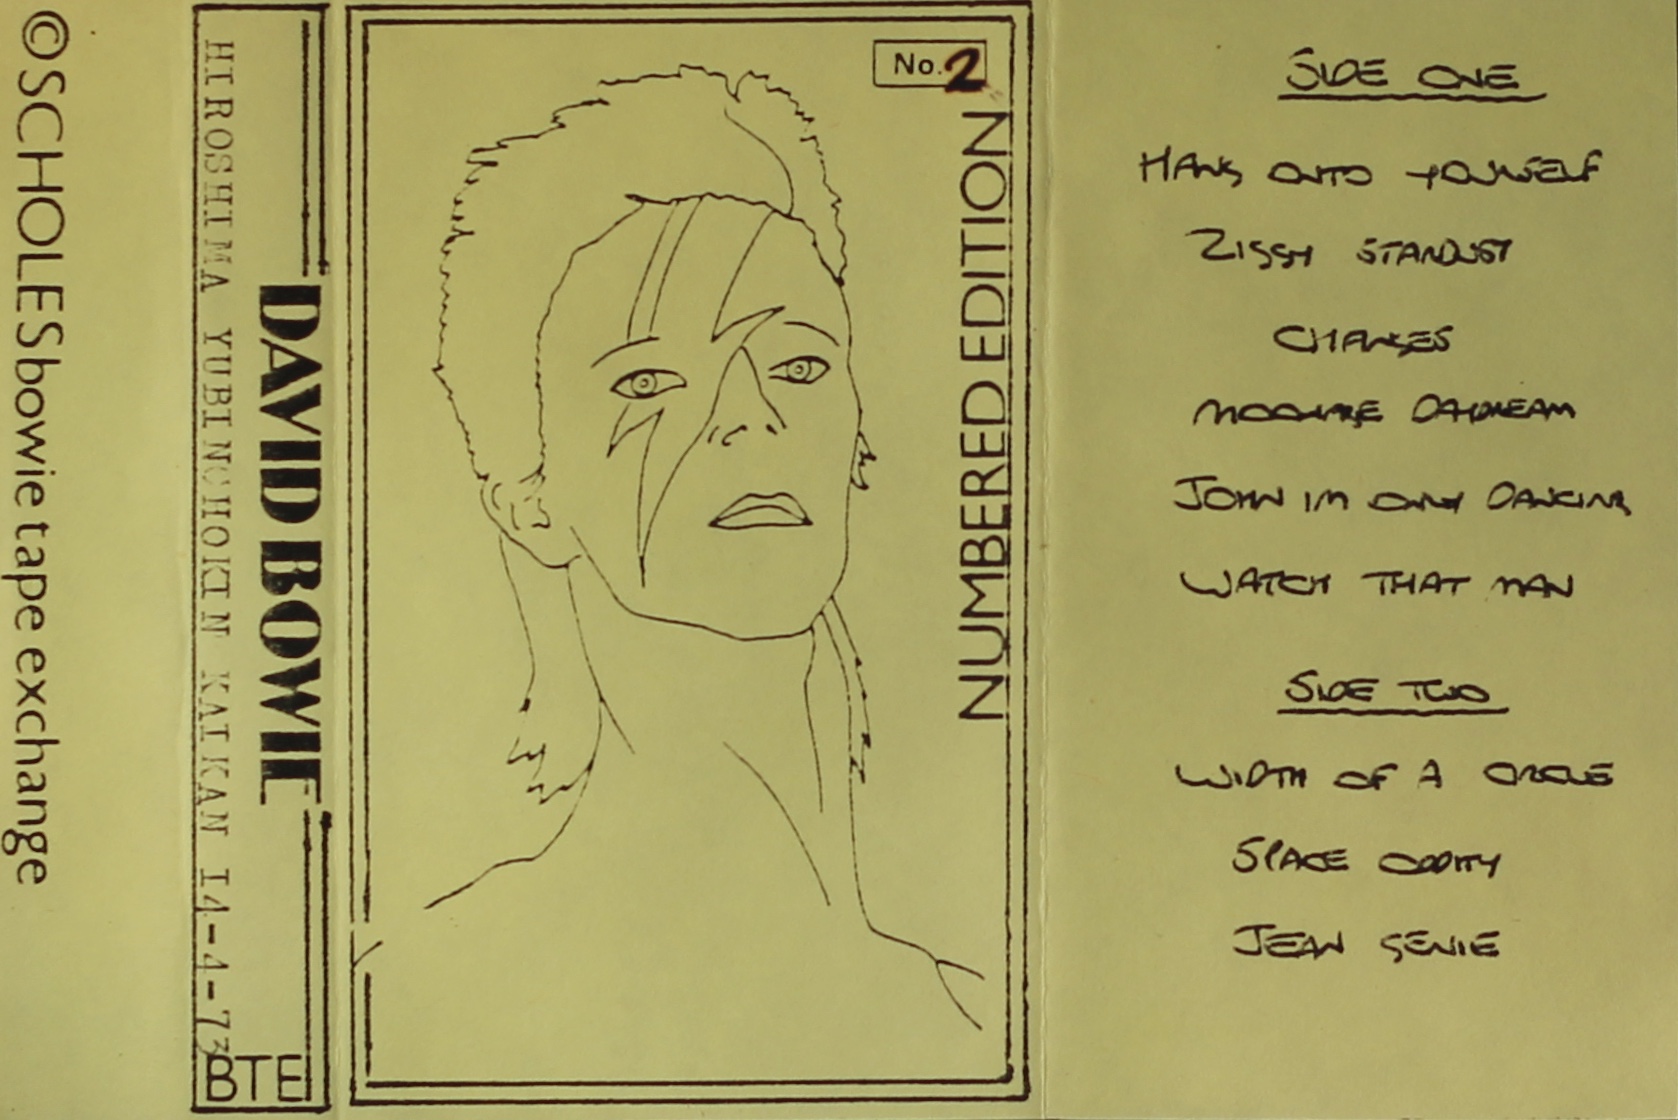 © SCHOLES bowie tape exchange
HIROSHIMA YUBINCHOKIN KAIKAN 14-4-73
DAVID BOWIE
BTE
No. 2
NUMBERED EDITION
SIDE ONE
HANG ONTO YOURSELF
ZIGGY STARDUST
CHANGES
MOONAGE DAYDREAM
JOHN IM ONLY DANCING
WATCH THAT MAN
SIDE TWO
WIDTH OF A CIRCLE
SPACE ODDITY
JEAN GENIE